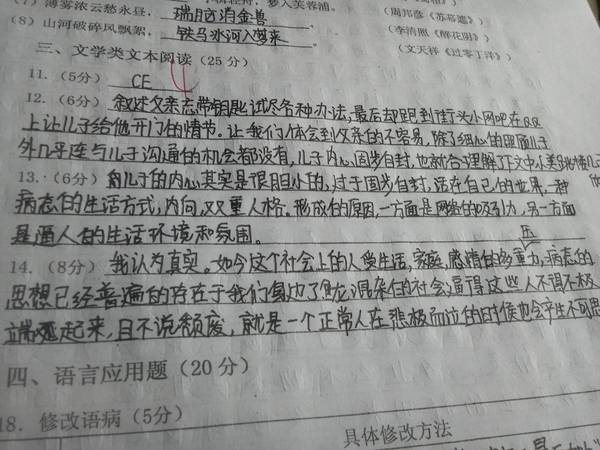 (7) 薄雾浓云愁永昼， 瑞脑消金兽 。 (周邦彦《苏幕遮》)
(8) 山河破碎风飘絮， 铁马冰河入梦来 。 (李清照《醉花阴》)
(文天祥《过零丁洋》)
三、文学类文本阅读 (25分)
11. (5分) CE
12. (6分) 叙述父亲忘带钥匙试尽各种办法，最后却跑到街头小网吧在QQ
上让儿子给他开门的情节。让我们体会到父亲的不容易，除了细心的照顾儿子
外几乎连与儿子沟通的机会都没有，儿子内心固步自封，也就
13. (6分) 儿子的内心其实是很胆小的，过于固步自封，活在自己的世界，一种
病态的生活方式，内向，双重人格。形成的原因，一方面是网络的吸引力，另一方面
是逼人的生活环境和氛围。
14. (8分) 我认为真实。如今这个社会上的人受生活，家庭，感情的多重压力，病态的
思想已经普遍的存在于我们身边了，混杂的社会逼得这些人不得不极
端起来，且不说颓废，就是一个正常人在悲极而泣的时候也会产生不可思
四、语言应用题 (20分)
18. 修改语病 (5分)
具体修改方法